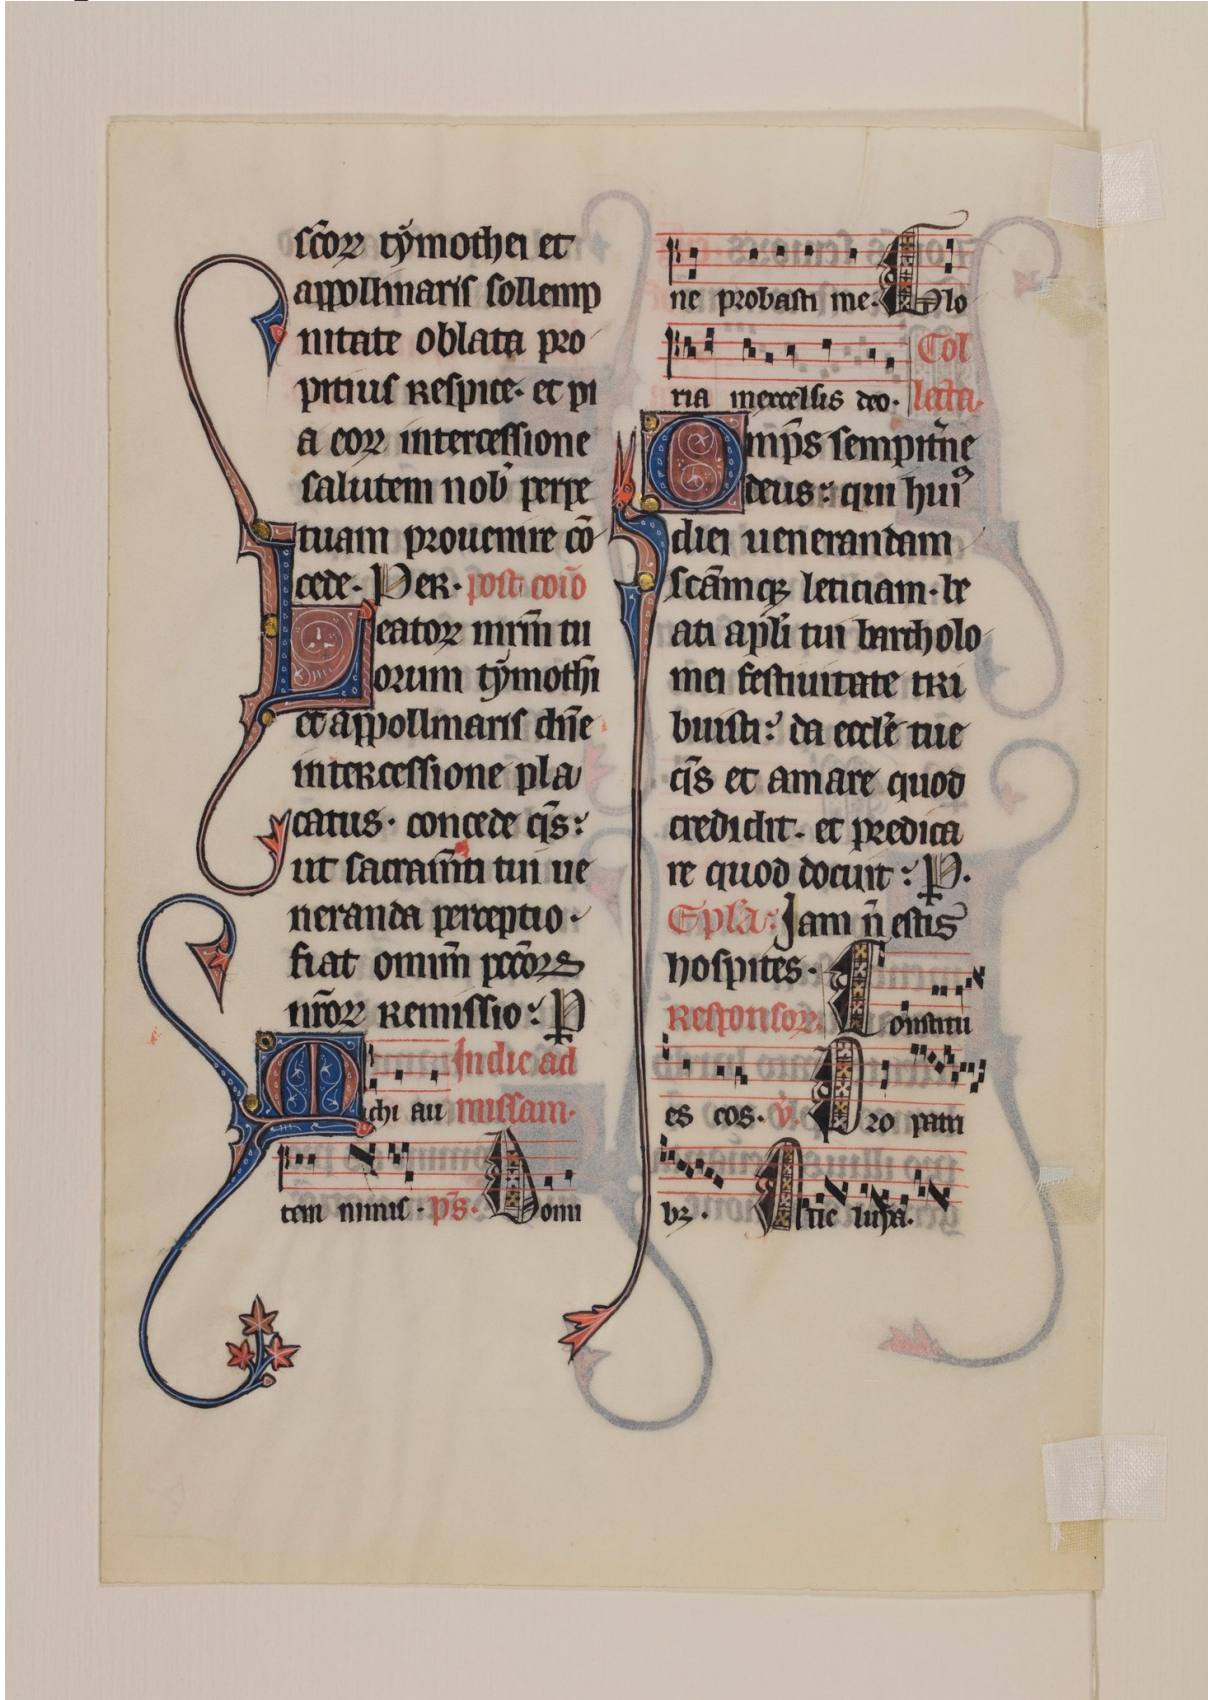 sc̄oꝝ tẏmothei et
appollinaris sollemp
nitate oblata pro
pitius respice· et pi
a eoꝝ intercessione
salutem nob̾ perpe
tuam prouenire cō
cede· Per· post coīo
Beatoꝝ mr̄m tu
orum tẏmoth̄i
et appollinaris dn̄e
intercessione pla
catus· concede q̄s:
ut sacram̄ti tui ue
neranda perceptio·
fiat omīm pccōꝝ
nr̄oꝝ remissio: P
In die ad
Michi au missam·
tem nimis· p̄s· Domi
ne probasti me· Glo
ria inexcelsis deo· Col
lecta·
Omp̄s sempit̄ne
deus: qui huiꝰ
diei uenerandam
sc̄amqꝫ leticiam· be
ati apl̄i tui bartholo
mei festiuitate tri
buisti: da eccl̄e tue
q̄s et amare quod
credidit· et predica
re quod docuit: P·
Epl̄a: Iam n̄ estis
hospites·
Responsoꝝ· Constitu
es eos· v̄· Pro patri
bꝫ· Alle luya·